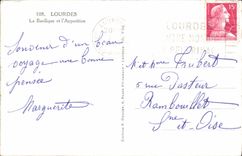 108. LOURDES
La Basilique et l'Apparition
Souvenir d'un beau
voyage une bonne
pensée
Marguerite
LOURDES
15F
M. et Mme Hubert
5 rue Pasteur
Rambouillet
Sne et Oise